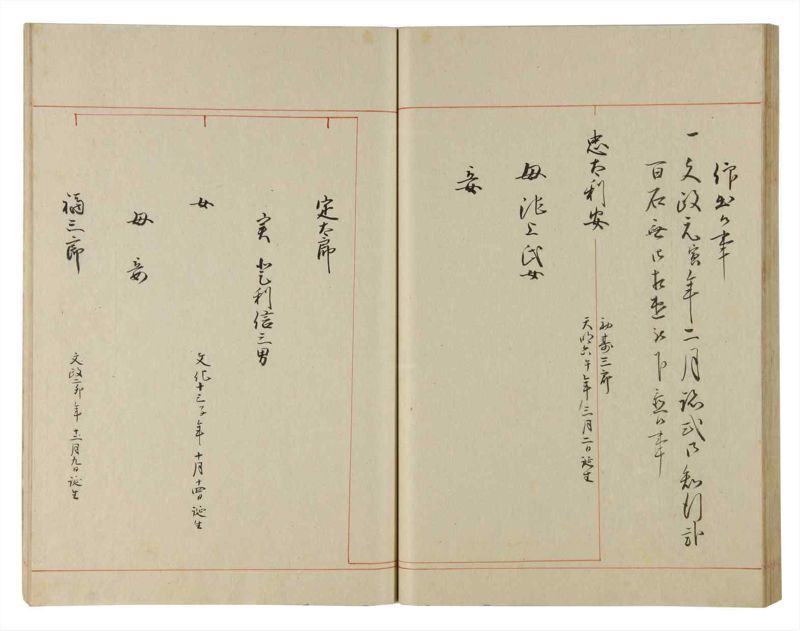 仰出候事
一文政元寅年二月跡式御知行弐
百石無御相違被下置候事
忠太利安
初甚三郎
天明六午年三月二日誕生
母 池上氏女
妾
定太郎
実 利信三男
女
文化十三子年十月十四日誕生
母 妾
福三郎
文政二卯年十二月九日誕生